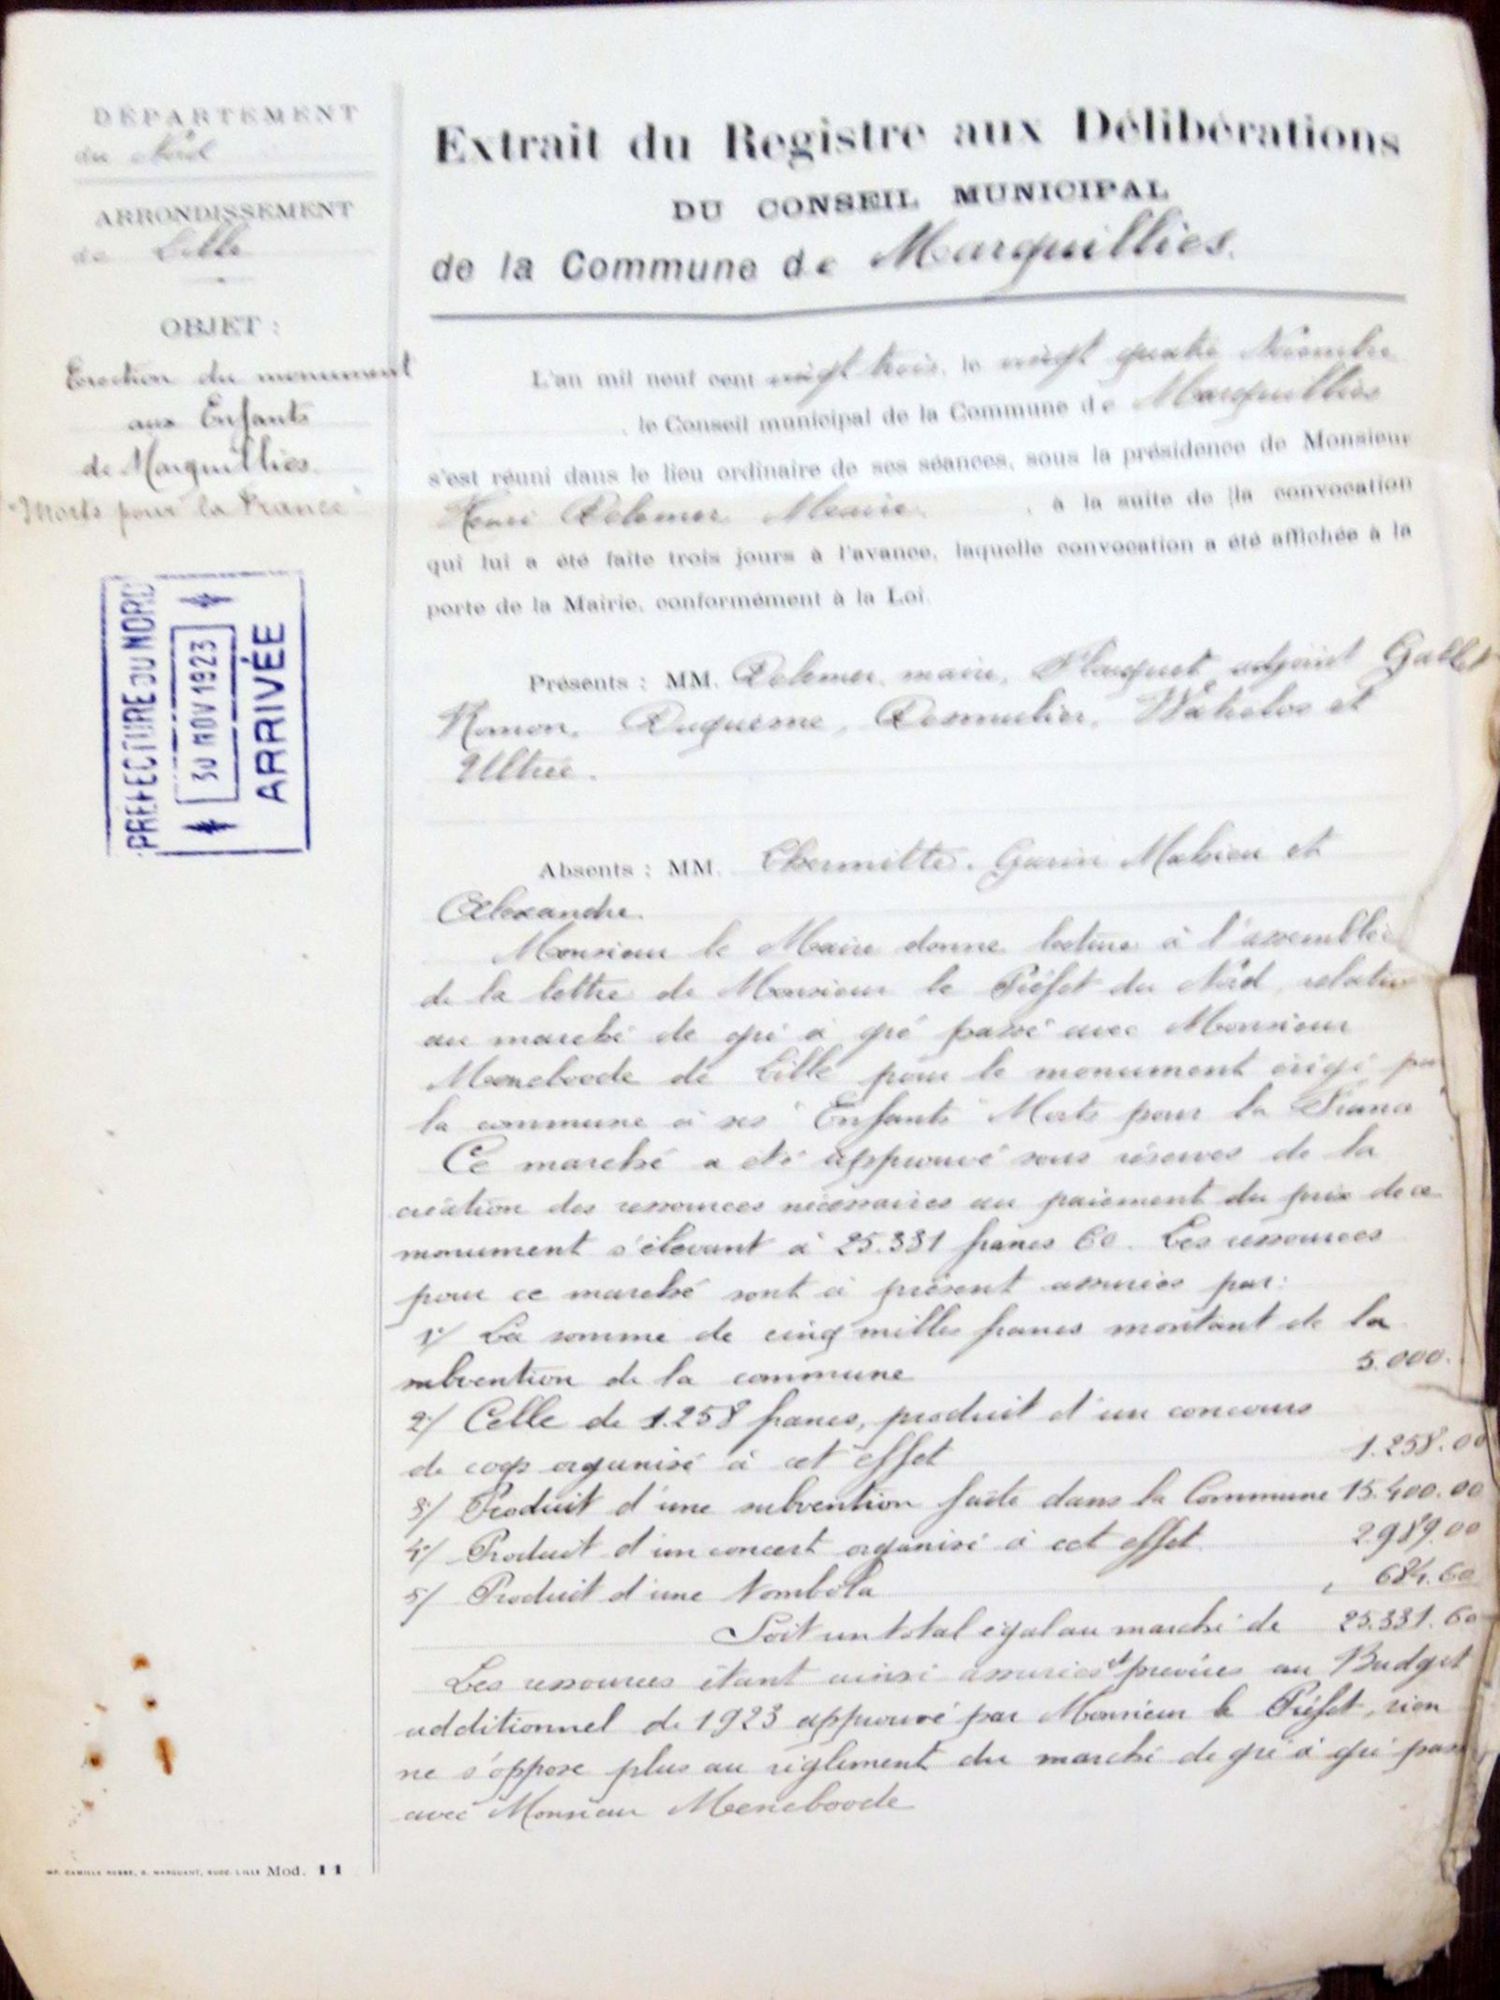 DÉPARTEMENT
du Nord
ARRONDISSEMENT
de Lille
OBJET :
Erection du monument
aux Enfants
de Marquillies
"Morts pour la France"
PREFECTURE DU NORD
30 NOV 1923
ARRIVÉE
Extrait du Registre aux Délibérations
DU CONSEIL MUNICIPAL
de la Commune de Marquillies.
L'an mil neuf cent vingt trois, le vingt quatre Novembre
, le Conseil municipal de la Commune de Marquillies
s'est réuni dans le lieu ordinaire de ses séances, sous la présidence de Monsieur
Henri Delemer Maire , à la suite de la convocation
qui lui a été faite trois jours à l'avance, laquelle convocation a été affichée à la
porte de la Mairie, conformément à la Loi.
Présents : MM. Delemer, maire, Plouquet adjoint
Duquesne, Desmulier, Wattelos et
Absents : MM. Lhermitte. Garin Mahieu et
Alexandre.
Monsieur le Maire donne lecture à l'assemblée
de la lettre de Monsieur le Préfet du Nord, relative
au marché de gré à gré passé avec Monsieur
Meneboode de Lille pour le monument érigé par
la commune à ses "Enfants Morts pour la France"
Ce marché a été approuvé sous réserves de la
création des ressources nécessaires au paiement du prix de ce
monument s'élevant à 25.331 francs 60. Les ressources
pour ce marché sont à présent assurées par:
1/ La somme de cinq milles francs montant de la
subvention de la commune 5.000.
2/ Celle de 1.258 francs, produit d'un concours
de coqs organisé à cet effet 1.258.00
3/ Produit d'une subvention faite dans la Commune 15.400.00
4/ Produit d'un concert organisé à cet effet 2.989.00
5/ Produit d'une Tombola 684.60
Soit un total égal au marché de 25.331.60
Les ressources étant ainsi assurées et prévues au Budget
additionnel de 1923 approuvé par Monsieur le Préfet, rien
ne s'oppose plus au règlement du marché de gré à gré passé
avec Monsieur Meneboode
Mod. 11